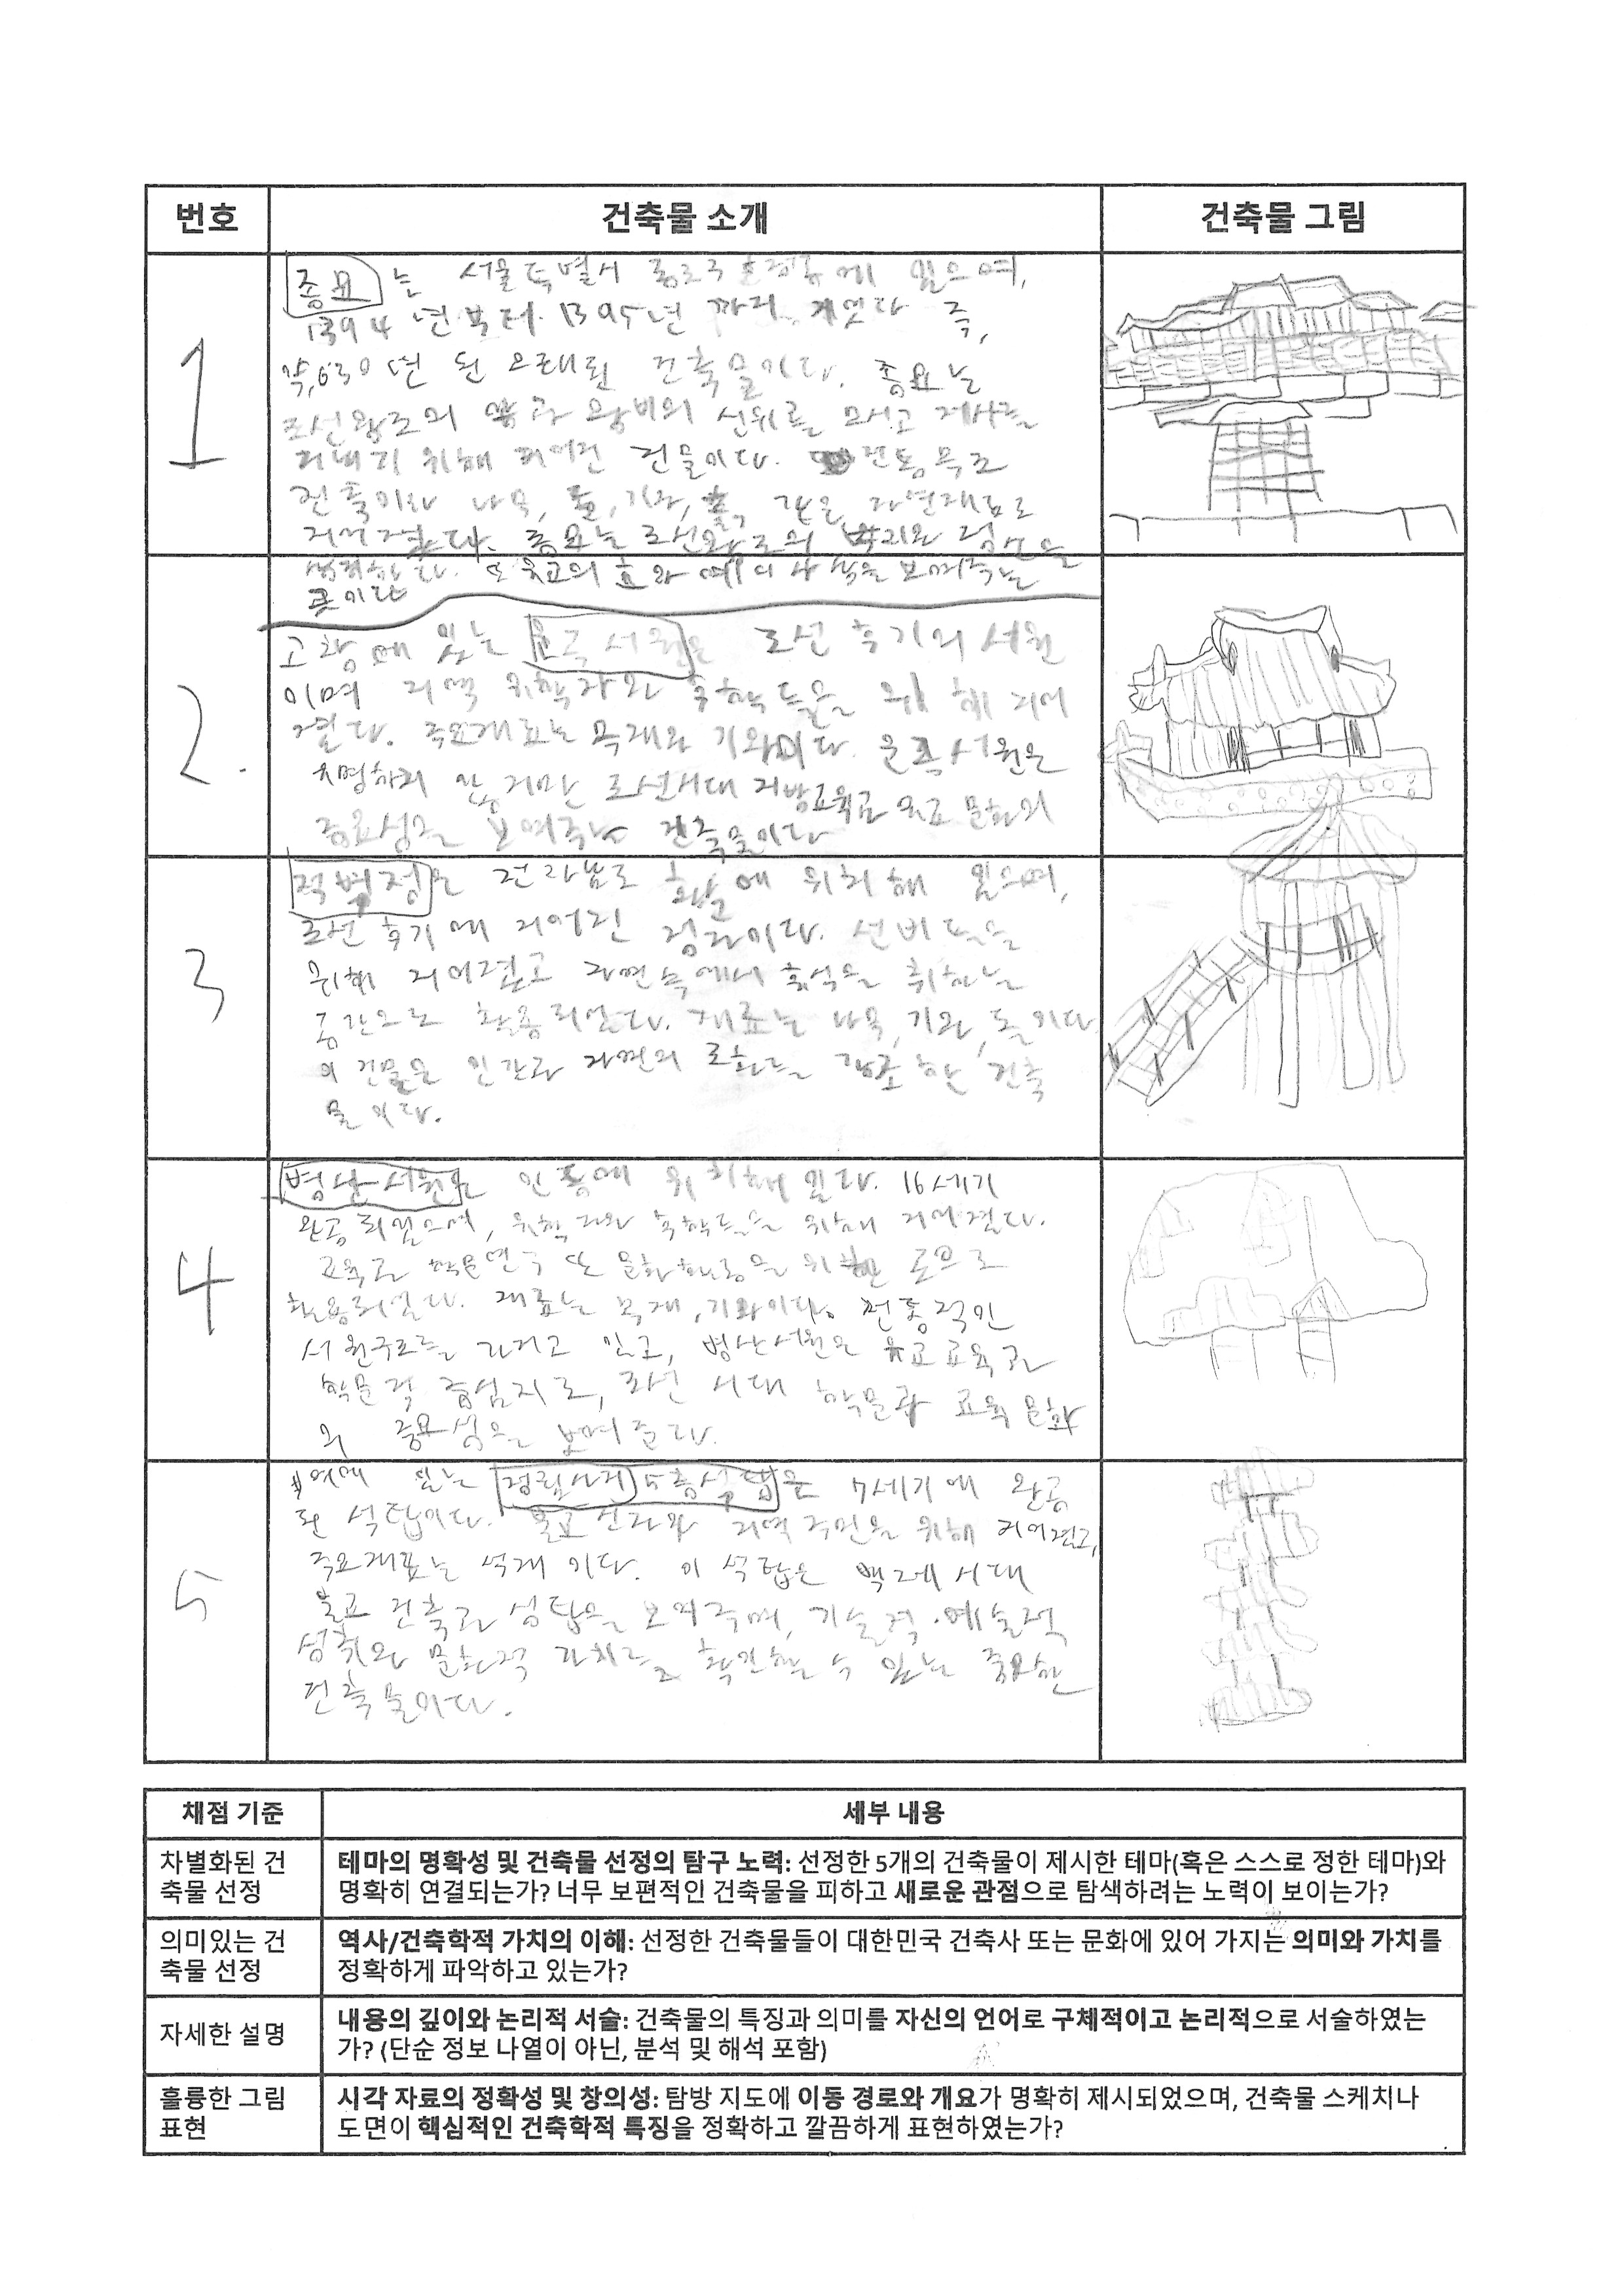 번호 건축물 소개 건축물 그림
1
종묘는 서울특별시 종로구 훈정동에 있으며,
1394년부터 1395년까지 지었다 즉,
약 630년 된 오래된 건축물이다. 종묘는
조선왕조의 왕과 왕비의 신위를 모시고 제사를
지내기 위해 지어진 건물이다. 전통목조
건축이와 나무, 돌, 기와, 흙, 같은 자연재료로
지어졌다. 종묘는 조선왕조의 뿌리와 정신을
또 유교의 효와 예의 사상을 보여주는
곳이다
2.
고창에 있는 운곡서원은 조선 후기의 서원
이며 지역 유학자와 후학들을 위해 지어
졌다. 주요재료는 목재와 기와이다. 운곡서원은
유명하지 않지만 조선시대 지방교육과 유교 문화의
중요성을 보여주는 건축물이다
3
적벽정은 전라남도 화순에 위치해 있으며,
조선 후기에 지어진 정자이다. 선비들을
위해 지어졌고 자연속에서 휴식을 취하는
공간으로 활용되었다. 재료는 나무, 기와, 돌이다
이 건물은 인간과 자연의 조화를 강조한 건축
물이다.
4
병산서원은 안동에 위치해 있다. 16세기
완공되었으며, 유학자와 후학들을 위해 지어졌다.
교육과 학문연구 또 문화행동을 위한 곳으로
활용되었다. 재료는 목재, 기와이다. 전통적인
서원구조를 가지고 있고, 병산서원은 유교교육과
학문적 중심지로, 조선 시대 학문과 교육 문화
의 중요성을 보여준다.
5
부여에 있는 정림사지 5층석탑은 7세기에 완공
된 석탑이다. 불교신자와 지역 주민을 위해 지어졌고,
주요재료는 석재 이다. 이 석탑은 백제시대
불교 건축과 석탑을 보여주며, 기술적·예술적
성취와 문화적 가치를 확인할 수 있는 중요한
건축물이다.
채점 기준 세부 내용
차별화된 건
축물 선정
테마의 명확성 및 건축물 선정의 탐구 노력: 선정한 5개의 건축물이 제시한 테마(혹은 스스로 정한 테마)와
명확히 연결되는가? 너무 보편적인 건축물을 피하고 새로운 관점으로 탐색하려는 노력이 보이는가?
의미있는 건
축물 선정
역사/건축학적 가치의 이해: 선정한 건축물들이 대한민국 건축사 또는 문화에 있어 가지는 의미와 가치를
정확하게 파악하고 있는가?
자세한 설명
내용의 깊이와 논리적 서술: 건축물의 특징과 의미를 자신의 언어로 구체적이고 논리적으로 서술하였는
가? (단순 정보 나열이 아닌, 분석 및 해석 포함)
훌륭한 그림
표현
시각 자료의 정확성 및 창의성: 탐방 지도에 이동 경로와 개요가 명확히 제시되었으며, 건축물 스케치나
도면이 핵심적인 건축학적 특징을 정확하고 깔끔하게 표현하였는가?